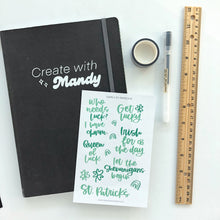 Create with
Mandy
Who
needs
luck?
I have
charm
Get
lucky
Irish
for
the day
Queen
of
luck
let the
Shenanigans
begin
St. Patrick's